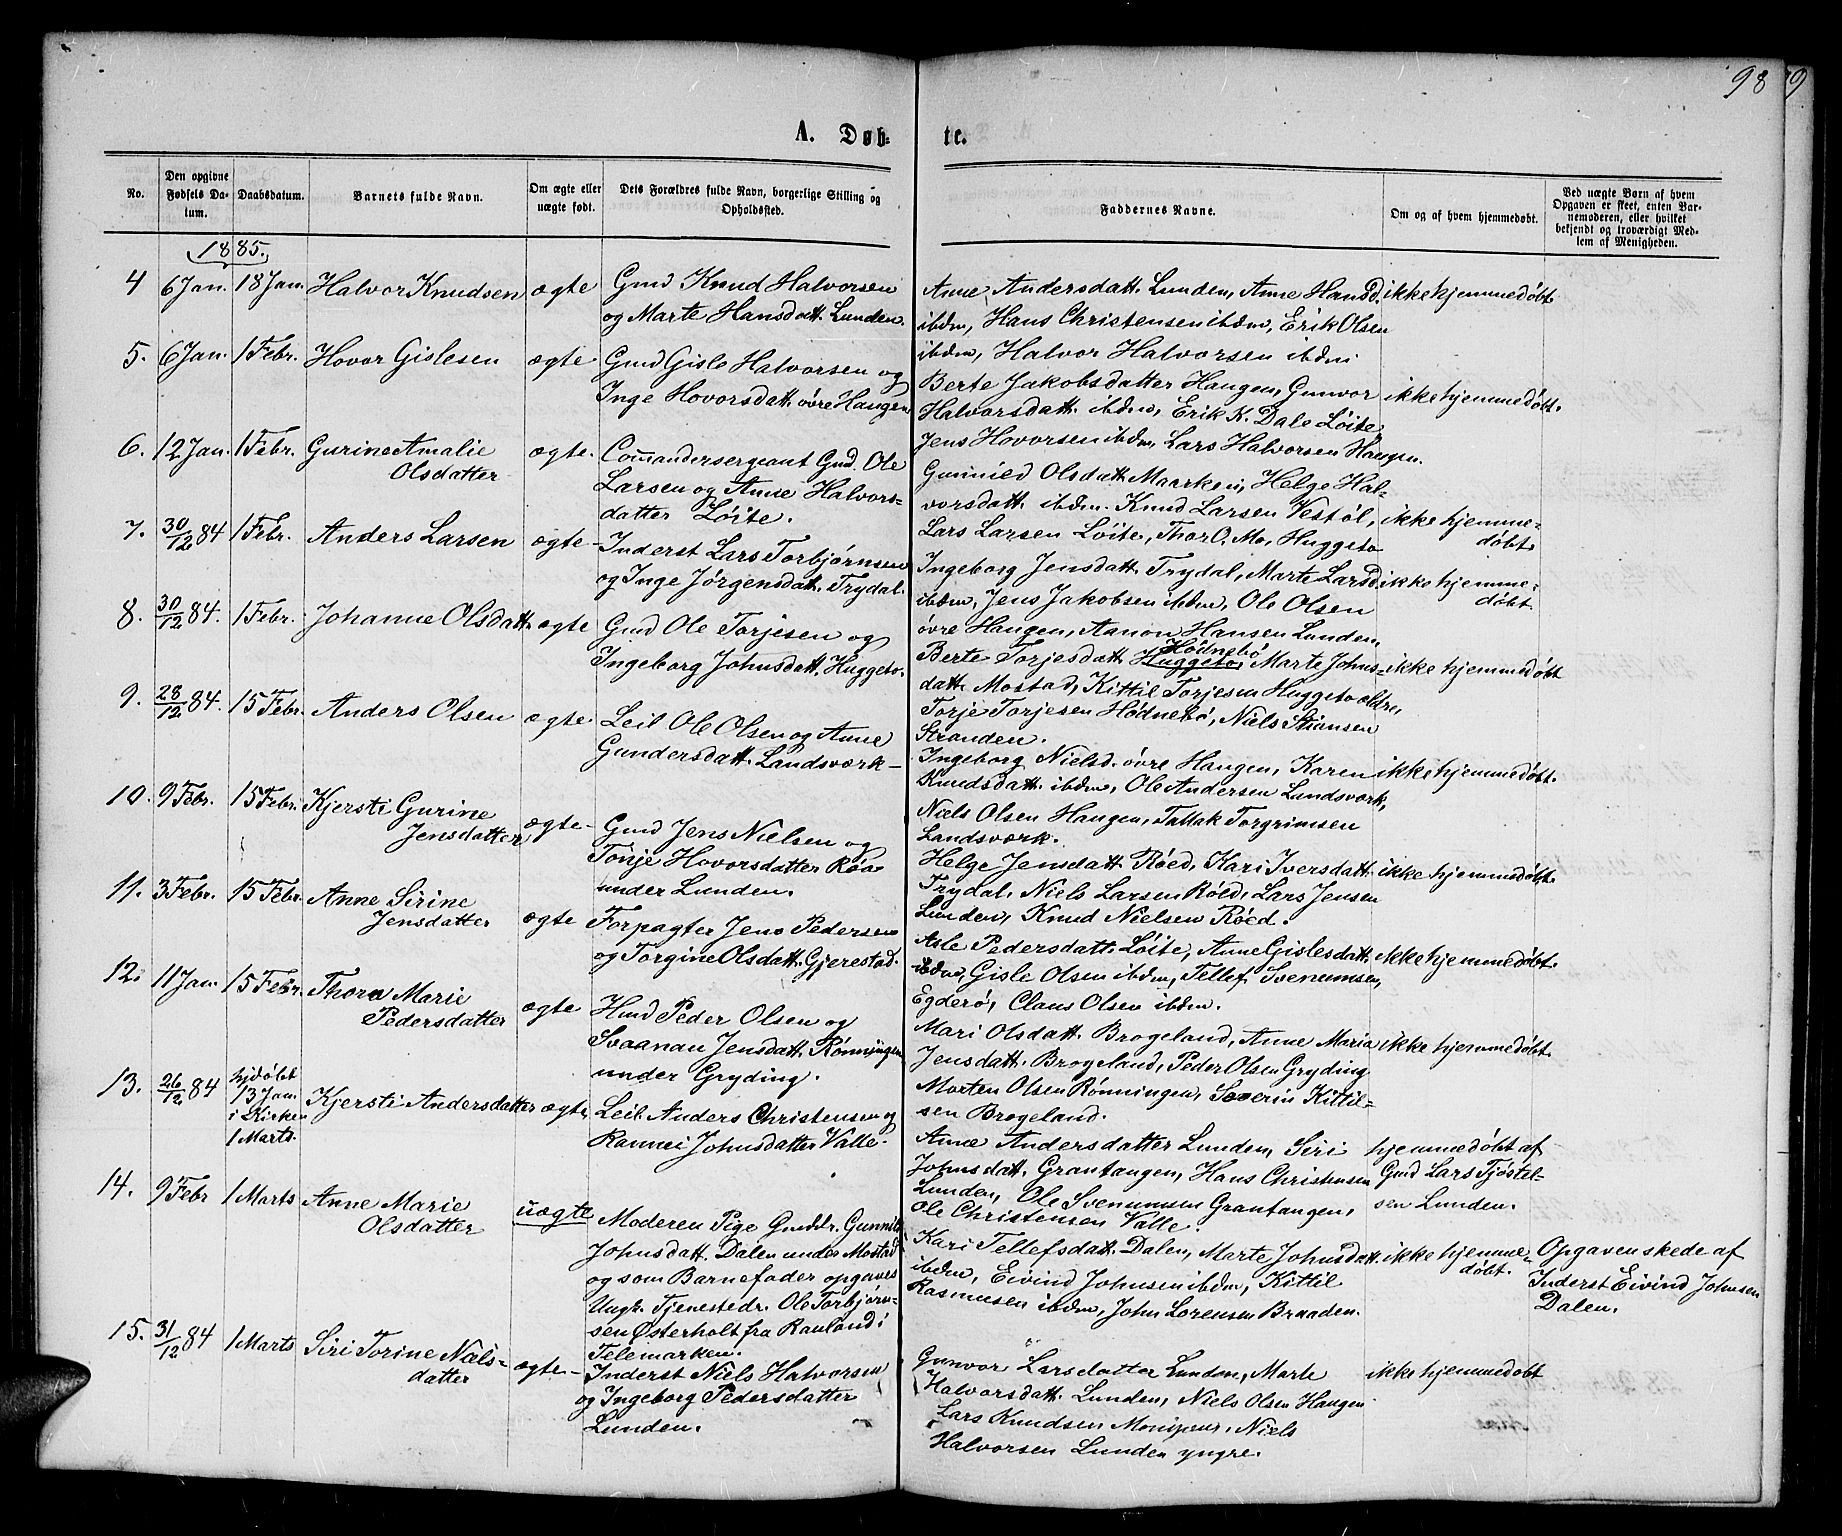 98
9
A. Døb-
te.
No.
Den opgivne Fødsels Datum.
Daabsdatum.
Barnets fulde Navn.
Om ægte eller uægte født.
Dets Forældres fulde Navn, borgerlige Stilling og Opholdssted.
Faddernes Navne.
Om og af hvem hjemmedøbt.
Ved uægte Børn af hvem Opgaven er skeet, enten Barnemoderen, eller hvilket bekjendt og troværdigt Medlem af Menigheden.
1885.
4 6 Jan. 18 Jan. Halvor Knudsen ægte
Gmd Knud Halvorsen
og Marte Hansdatt. Lunden.
Anne Andersdatt. Lunden, Anne Hansd.
ibdm, Hans Christensen ibdm, Erik Olsen
ibdm, Halvor Halvorsen ibdm
ikke hjemmedøbt
5. 6 Jan. 1 Febr. Hovor Gislesen ægte
Gmd Gisle Halvorsen og
Inge Hovorsdatt. øvre Haugen
Berte Jakobsdatter Haugen, Gunvor
Halvorsdatt. ibdm, Erik K. Dale Løite,
Jens Hovorsen ibdm, Lars Halvorsen Haugen.
ikke hjemmedøbt.
6. 12 Jan. 1 Febr. Gurine Amalie
Olsdatter
ægte.
Comandersergeant Gmd. Ole
Larsen og Anne Halvors-
datter Løite.
Gunnild Olsdatt. Maarken, Helge Hal-
vorsdatt. ibdm. Knud Larsen Vestøl,
Lars Larsen Løite, Thor O. Mo, Huggeto
ikke hjemme-
døbt.
7. 30/12 84 1 Febr. Anders Larsen ægte-
Inderst Lars Torbjørnsen
og Inge Jørgensdatt. Trydal.
Ingeborg Jensdatt. Trydal, Marte Larsd
ibdm, Jens Jakobsen ibdm, Ole Olsen
øvre Haugen, Aanon Hansen Lunden,
ikke hjemme-
døbt.
8. 30/12 84. 1 Febr. Johanne Olsdatt. ægte
Gmd Ole Torjesen og
Ingeborg Johnsdatt. Huggeto.
Hødnebø
Berte Torjesdatt. Huggeto, Marte Johns-
datt. Mostad, Kittil Torjesen Huggeto ældre,
Torje Torjesen Hødnebø, Niels Stiansen
Stranden.
ikke hjemmedøbt
9. 28/12 84. 15 Febr. Anders Olsen ægte
Leil. Ole Olsen og Anne
Gundersdatt. Landsværk-
Ingeborg Nielsd. øvre Haugen, Karen
Knudsdatt. ibdm, Ole Andersen Lundsværk,
Niels Olsen Haugen, Tallak Torgrimsen
Landsværk.
ikke hjemmedøbt.
10. 9 Febr. 15 Febr. Kjersti Gurine
Jensdatter
ægte-
Gmd Jens Nielsen og
Tonje Hovorsdatter Røa
under Lunden.
Helge Jensdatt. Røed, Kari Iversdatt.
Trydal, Niels Larsen Røed, Lars Jensen
Lunden, Knud Nielsen Røed.
ikke hjemmedøbt.
11. 3 Febr. 15 Febr. Anne Sirine
Jensdatter
ægte
Forpagter Jens Pedersen
og Torgine Olsdatt. Gjerestad.
Asle Pedersdatt. Løite, Anne Gislesdatt.
ibdm, Gisle Olsen ibdm, Tellef Svenumsen,
Egderø, Claus Olsen ibdm.
ikke hjemmedøbt.
12. 11 Jan. 15 Febr. Thora Marie
Pedersdatter
ægte
Hmd Peder Olsen og
Svaanau Jensdatt. Rønningen
under Gryding.
Mari Olsdatt. Brogeland, Anne Maria
Jensdatt. Brogeland, Peder Olsen Gryding
Morten Olsen Rønningen, Severin Kittil-
sen Brogeland.
ikke hjemmedøbt.
13. 26/12 84
hjdøbt
13 Jan.
i Kirken
1 Marts.
Kjersti Andersdatter ægte
Leil. Anders Christensen og
Rannei Johnsdatter Valle.
Anne Andersdatter Lunden, Siri
Johnsdatt. Grantangen, Hans Christensen
Lunden, Ole Svenumsen Grantangen,
Ole Christensen Valle.
hjemmedøbt af
Gmd Lars Tjøstel-
sen Lunden.
14. 9 Febr 1 Marts Anne Marie
Olsdatter
uægte
Moderen Pige Gmddr. Gunnild
Johnsdatt. Dalen under Mostad
og som Barnefader opgaves
Ungk. Tjenestedr. Ole Torbjørn-
sen Østerholt fra Rauland i
Telemarken.
Kari Tellefsdatt. Dalen, Marte Johnsdatt.
ibdm, Eivind Johnsen ibdm, Kittil
Rasmusen ibdm, John Lorensen Braaden.
ikke hjemme-
døbt.
Opgaven skede af
Inderst Eivind Johnsen
Dalen.
15. 31/12 84 1 Marts Siri Torine Niels-
datter
ægte-
Inderst Niels Halvorsen
og Ingeborg Pedersdatter
Lunden.
Gunvor Larsdatter Lunden, Marte
Halvorsdatt. Lunden, Niels Olsen Haugen
Lars Knudsen Niels
Halvorsen Lunden yngre.
ikke hjemmedøbt